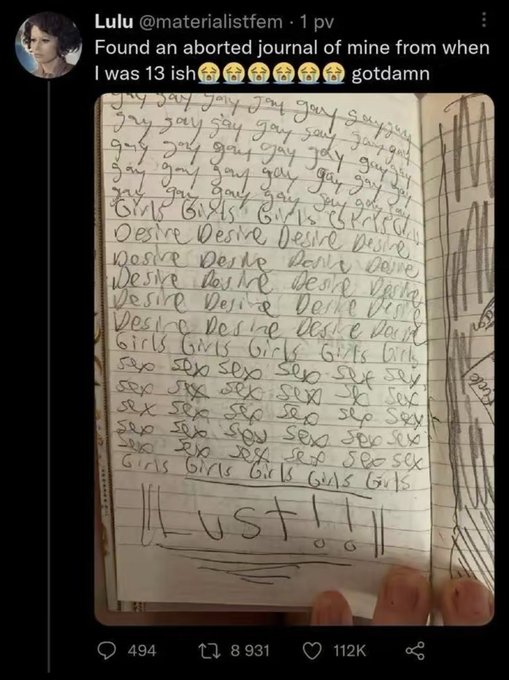 Lulu @materialistfem · 1 pv
Found an aborted journal of mine from when
I was 13 ish😭😭😭😭😭😭 gotdamn
gay gay gay gay gay gay gay
gay gay gay gay gay gay gay
gay gay gay gay gay gay gay
gay gay gay gay gay gay gay
gay gay gay gay gay gay gay
Girls Girls Girls Girls Girls
Desire Desire Desire Desire
Desire Desire Desire Desire
Desire Desire Desire Desire
Desire Desire Desire Desire
Desire Desire Desire Desire
Girls Girls Girls Girls Girls
sex sex sex sex sex sex
sex sex sex sex sex sex
sex sex sex sex sex sexy
sex sex sex sex sex sex
sex sex sex sex sex sex
Girls Girls Girls Girls Girls
||Lust!!||
494 8 931 112K